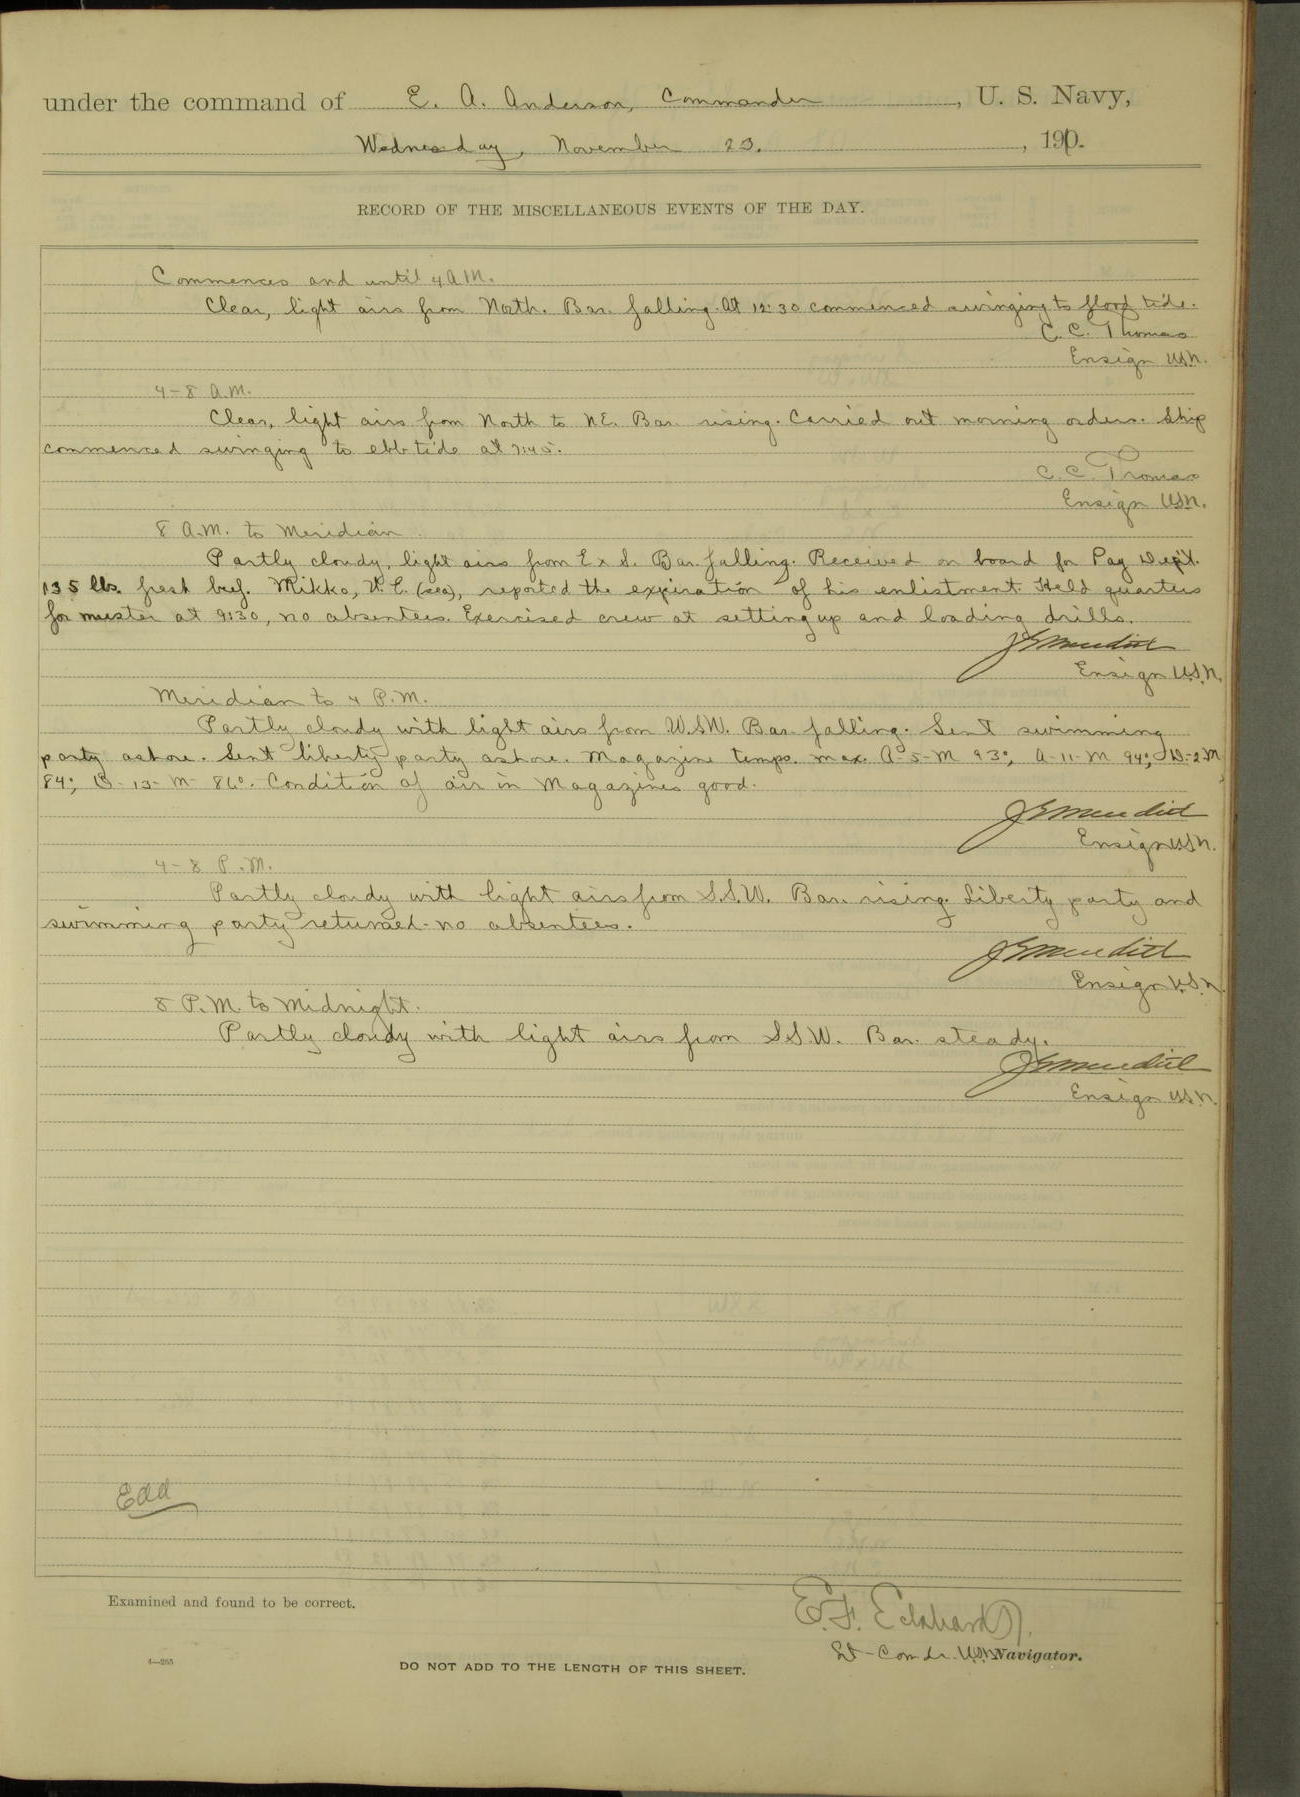 under the command of E. A. Anderson, Commander, U. S. Navy,
Wednesday, November 23, 1910.
RECORD OF THE MISCELLANEOUS EVENTS OF THE DAY.
Commences and until 4 A.M.
Clear, light airs from North. Bar. falling. At 12:30 commenced swinging to flood tide.
C. C. Thomas
Ensign U.S.N.
4-8 A.M.
Clear, light airs from North to NE. Bar. rising. Carried out morning orders. Ship
commenced swinging to ebb tide at 7:45.
C. C. Thomas
Ensign U.S.N.
8 A.M. to Meridian
Partly cloudy, light airs from E x S. Bar. falling. Received on board for Pay Dept.
135 lbs. fresh beef. Mikko, (sea), reported the expiration of his enlistment. Held quarters
for muster at 9:30, no absentees. Exercised crew at setting up and loading drills.
J G Meredith
Ensign U.S.N.
Meridian to 4 P.M.
Partly cloudy with light airs from W.S.W. Bar. falling. Sent swimming
party ashore. Sent liberty party ashore. Magazine temps. max. A-5-M 93°, A-11-M 94°, D-2-M
84°, B-13-M 86°. Condition of air in Magazines good.
J G Meredith
Ensign U.S.N.
4-8 P.M.
Partly cloudy with light airs from S.S.W. Bar. rising. Liberty party and
swimming party returned - no absentees.
J G Meredith
Ensign U.S.N.
8 P.M. to Midnight.
Partly cloudy with light airs from S.S.W. Bar. steady.
J G Meredith
Ensign U.S.N.
Examined and found to be correct.
E. F. Eckhardt.
Lt-Comdr. U.S.N. Navigator.
4—265
DO NOT ADD TO THE LENGTH OF THIS SHEET.